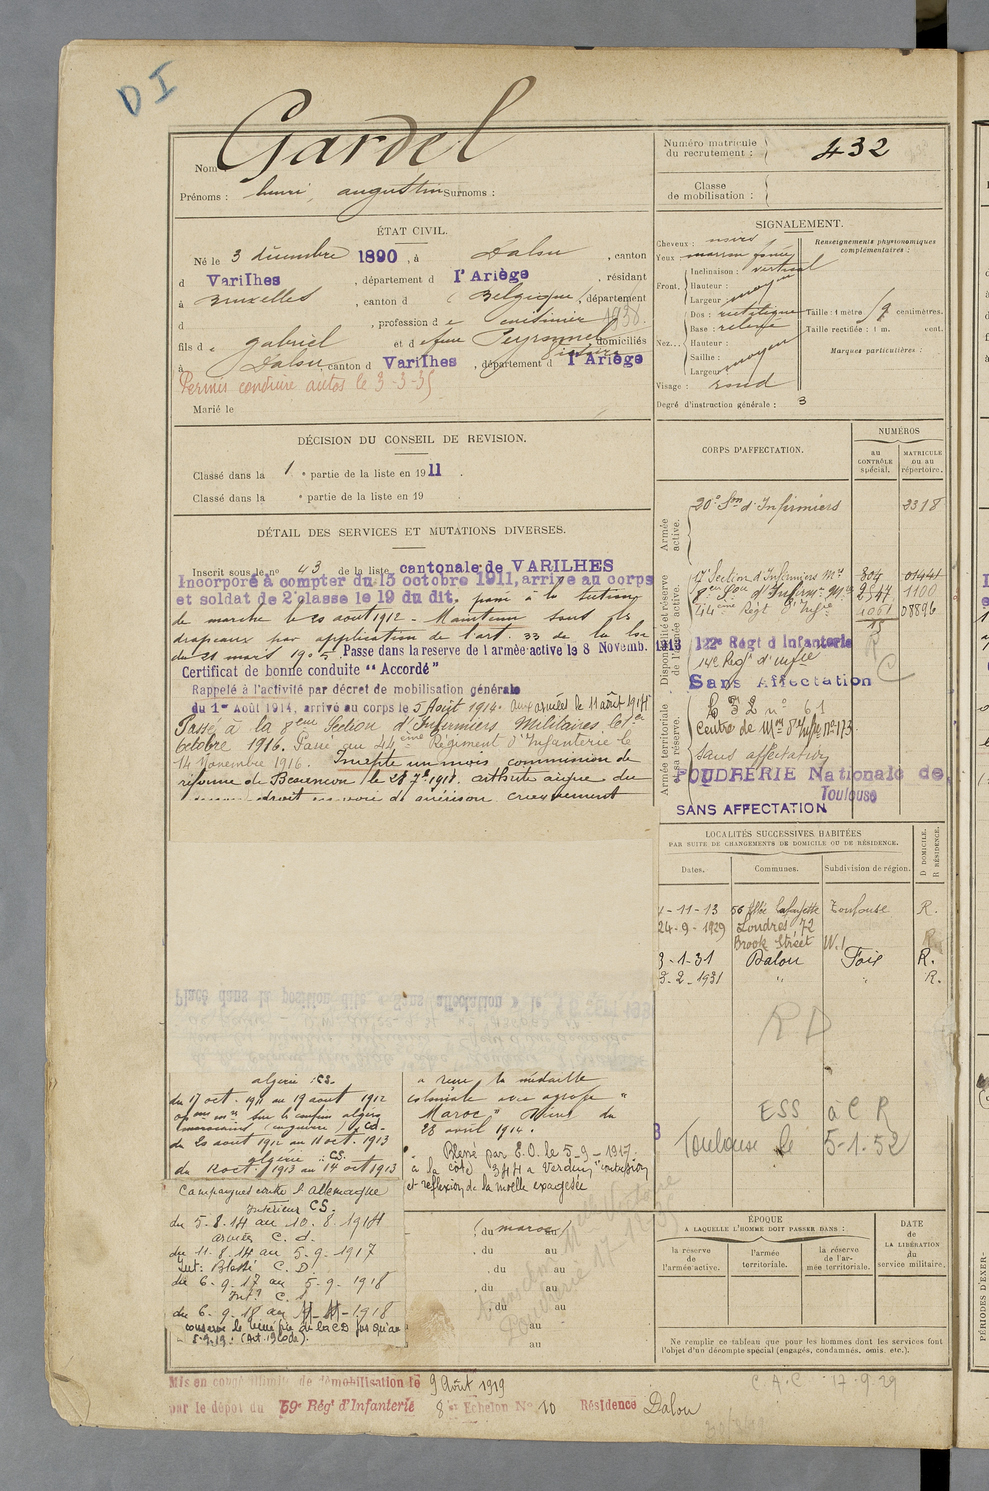 D I
Nom Gardel
Prénoms : henri, augustin Surnoms :
Numéro matricule
du recrutement : 432
Classe
de mobilisation :
ÉTAT CIVIL.
Né le 3 décembre 1890, à Dalou, canton
d Varilhes, département d l'Ariège, résidant
à Bruxelles, canton d (Belgique), département
d , profession d e cuisinier 1938.
fils d e gabriel et d e feue Peyronnel domiciliés
à Dalou canton d Varilhes, département d l'Ariège
Permis conduire autos le 3-3-35
Marié le
SIGNALEMENT.
Cheveux : noirs
Yeux marron foncé
Front. Inclinaison : vertical
Hauteur :
Largeur : moyen
Nez... Dos : rectiligne
Base : relevée
Hauteur :
Saillie :
Largeur : moyen
Visage : rond
Degré d'instruction générale : 3
Renseignements physionomiques
complémentaires :
Taille : 1 mètre centimètres.
Taille rectifiée : 1 m. cent.
Marques particulières :
DÉCISION DU CONSEIL DE REVISION.
Classé dans la 1e partie de la liste en 1911.
Classé dans la e partie de la liste en 19 .
DÉTAIL DES SERVICES ET MUTATIONS DIVERSES.
Inscrit sous le no 43 de la liste cantonale de VARILHES
Incorporé à compter du 13 octobre 1911, arrivé au corps
et soldat de 2e classe le 19 du dit. passé à la section
de marche le 20 aout 1912 - Maintenu sous les
drapeaux par application de l'art. 33 de la loi
du 21 mars 1905. Passe dans la reserve de l armée active le 8 Novemb. 1913
Certificat de bonne conduite "Accordé"
Rappelé à l'activité par décret de mobilisation générale
du 1er Août 1914, arrivé au corps le 5 Août 1914. Aux armées le 11 août 1914
Passé à la 8eme Section d'Infirmiers Militaires le 1er
Octobre 1916. Passé au 44eme Régiment d'Infanterie le
14 Novembre 1916. Inapte un mois commission de
réforme de Besançon le 27 7e 1918. arthrite aigue du
droit en voie de guérison
CORPS D'AFFECTATION.
NUMÉROS
au
CONTRÔLE
spécial.
MATRICULE
ou au
répertoire.
Armée
active.
20e Son d'Infirmiers 2318
Disponibilité et réserve
de l'armée active.
Section d'Infirmiers Mres 304 01441
8eme Son d'Infirm. Mres 2547 1100
44eme Régt d'Infie 1051 08896
122e Régt d Infanterie
14e Reg' d'infie
Sans Affectation
R
C
Armée territoriale
et sa réserve.
no 61
Centre de Mon d'Infie No 173
Sans affectation
POUDRERIE Nationale de
Toulouse
SANS AFFECTATION
LOCALITÉS SUCCESSIVES HABITÉES
PAR SUITE DE CHANGEMENTS DE DOMICILE OU DE RÉSIDENCE.
Dates.
Communes.
Subdivision de région.
D DOMICILE.
R RÉSIDENCE.
4-11-13 56 Allée Lafayette Toulouse R.
24-9-1929 Londres, 72
Brook Street W.1 R
3-1-31 Dalou Foix R.
3-2-1931 " " R.
R D
ESS à C R
Toulouse le 5-1-52
Placé dans la position dite « Sans affectation » le
algérie : CS.
du 17 oct. 1911 au 19 aout 1912
opons sur les confins algéro
marocains (en guerre) : CD.
du 20 aout 1912 au 11 oct. 1913
algérie : CS.
du 12 oct. 1913 au 14 oct 1913
a reçu la médaille
coloniale avec agrafe "
Maroc" du
28 avril 1914.
Blessé par E.O. le 5-9-1917.
à la côte 344 à Verdun, "contusion
et réflexion de la moelle exagérée
Campagnes contre l'Allemagne
Intérieur C.S.
du 5-8-14 au 10.8.1914
armées C. d.
du 11-8.14 au 5-9-1917
Int: Blessé C. D.
du 6-9-17 au 5-9-1918
Int: C. S.
du 6-9-18 au 11-11-1918
conserve le bénéfice de la CD jusqu'au
5-9-19: (Art. 19 Loi de).
du maroc au
du au
du au
du au
du au
au
au
Poudrerie 17-12-38
ÉPOQUE
A LAQUELLE L'HOMME DOIT PASSER DANS :
la réserve
de
l'armée active.
l'armée
territoriale.
la réserve
de l'ar-
mée territoriale.
DATE
de
LA LIBÉRATION
du
service militaire.
Ne remplir ce tableau que pour les hommes dont les services font
l'objet d'un décompte spécial (engagés, condamnés, omis, etc.).
C.A.C. 17-9-29
Mis en congé illimité de démobilisation le 9 Août 1919
par le dépôt du 59e Rég' d'Infanterie 8e Echelon No 10 Résidence Dalou
PÉRIODES D'EXER-